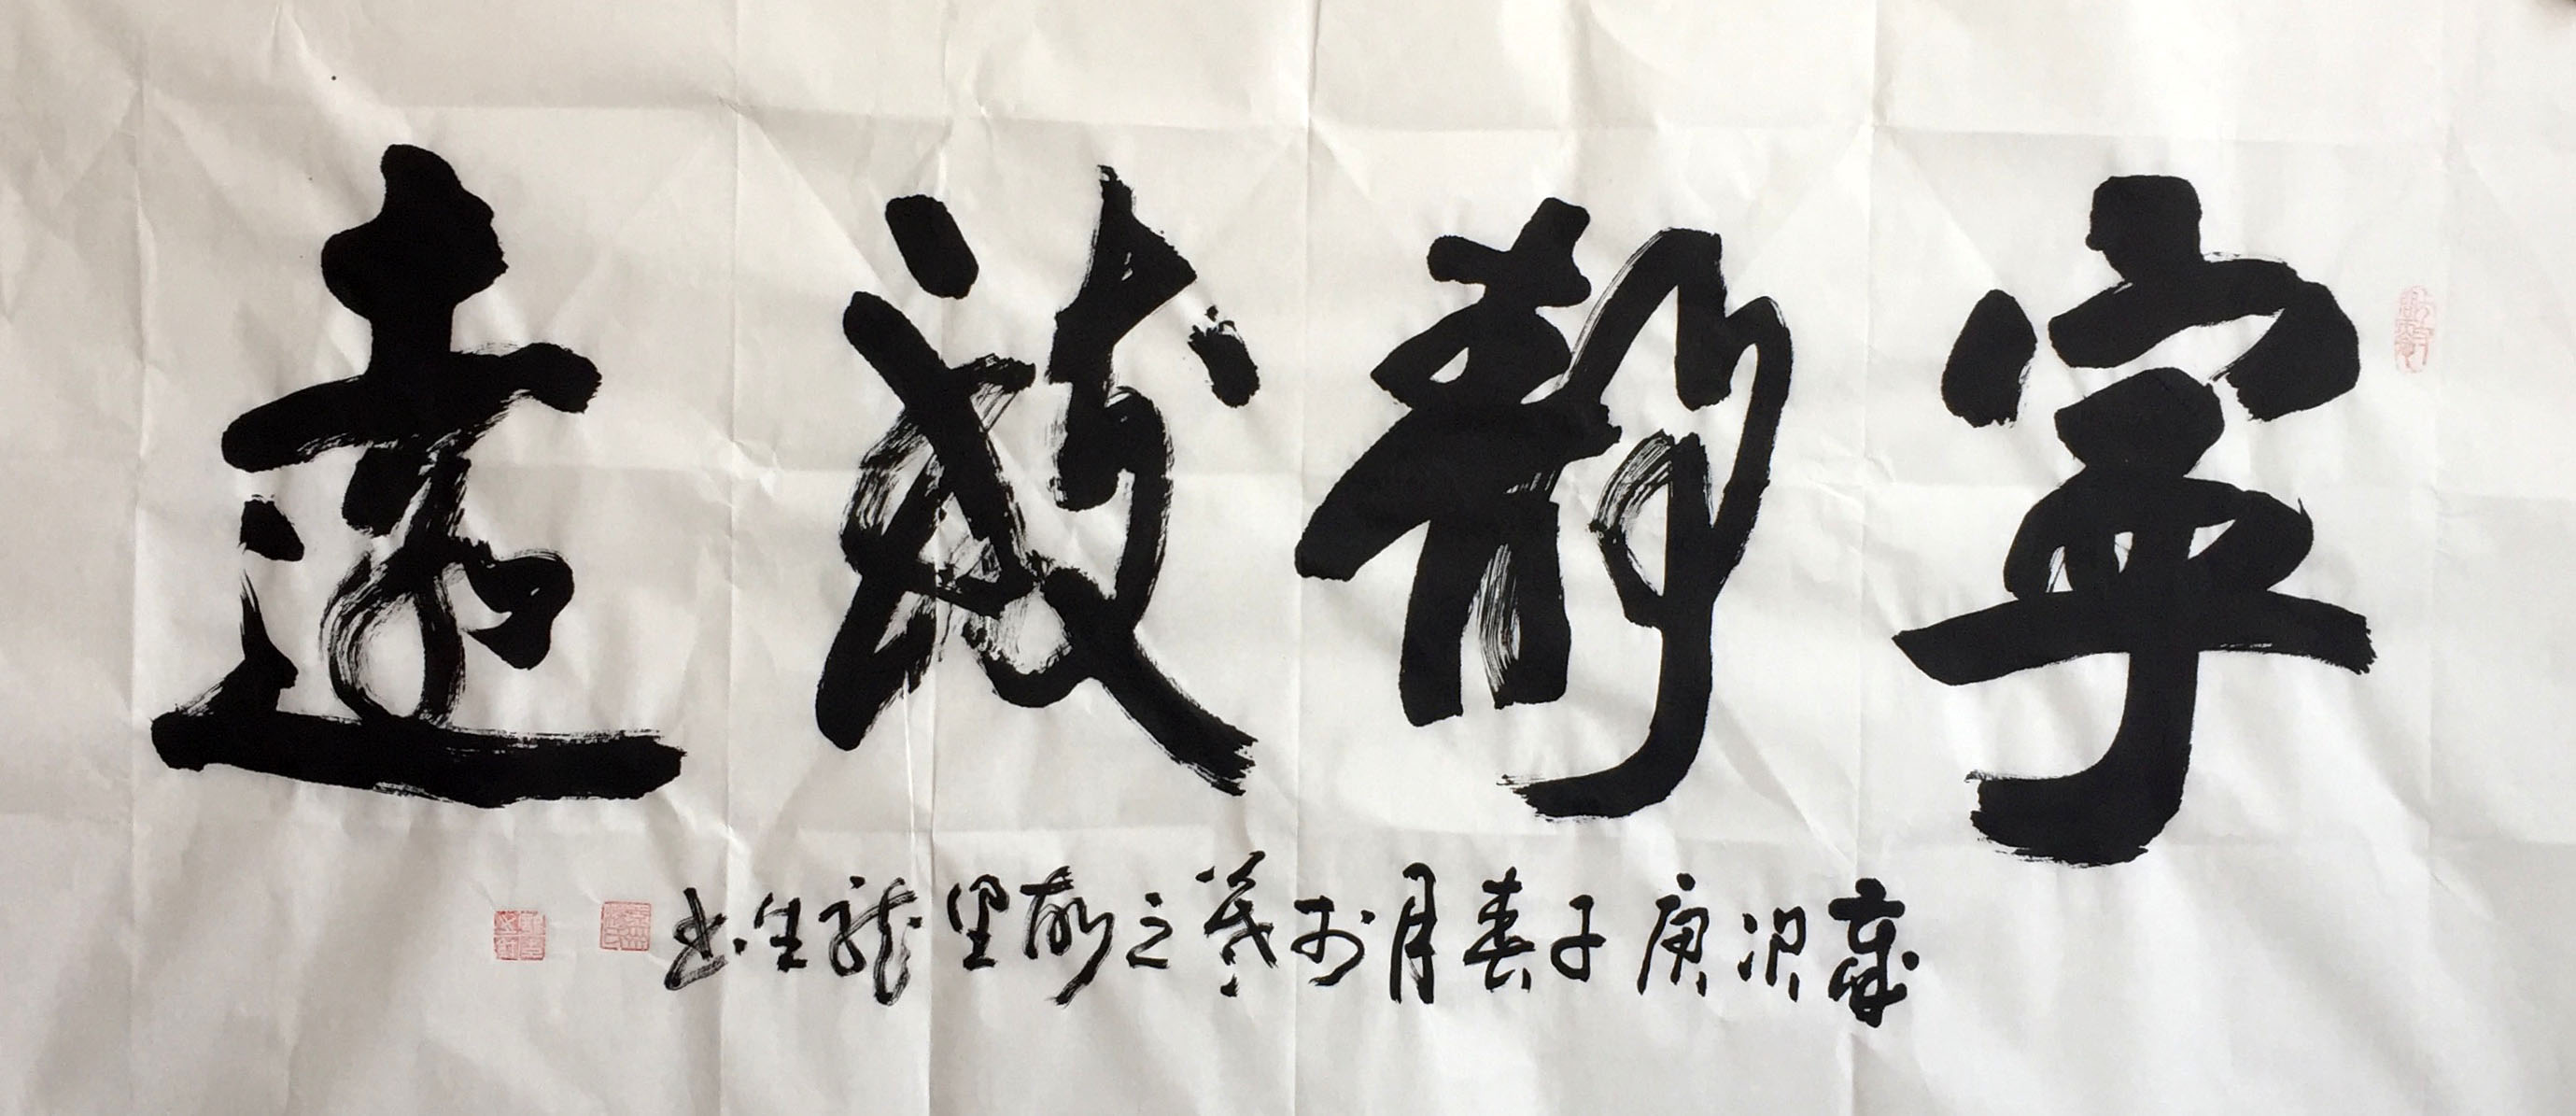 寧靜致遠
歲次庚子春月於羲之故里龍生書